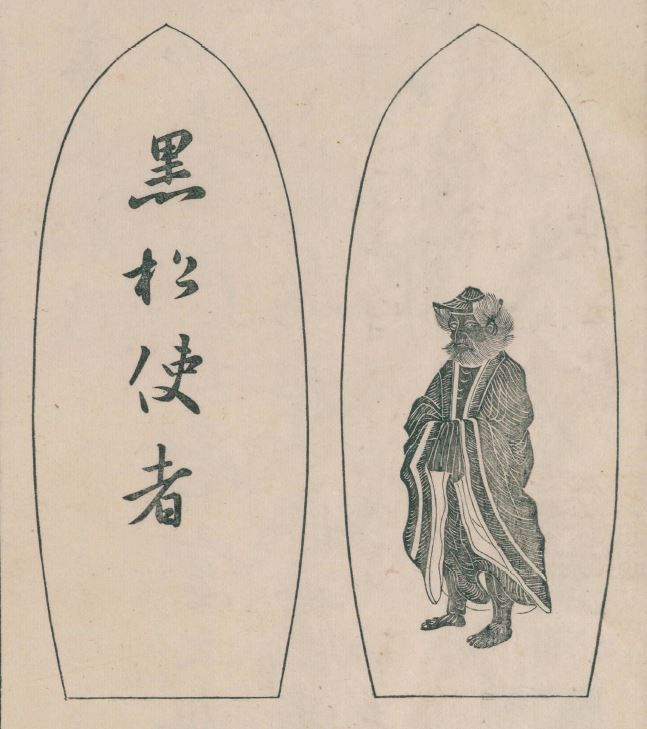 黑松使者